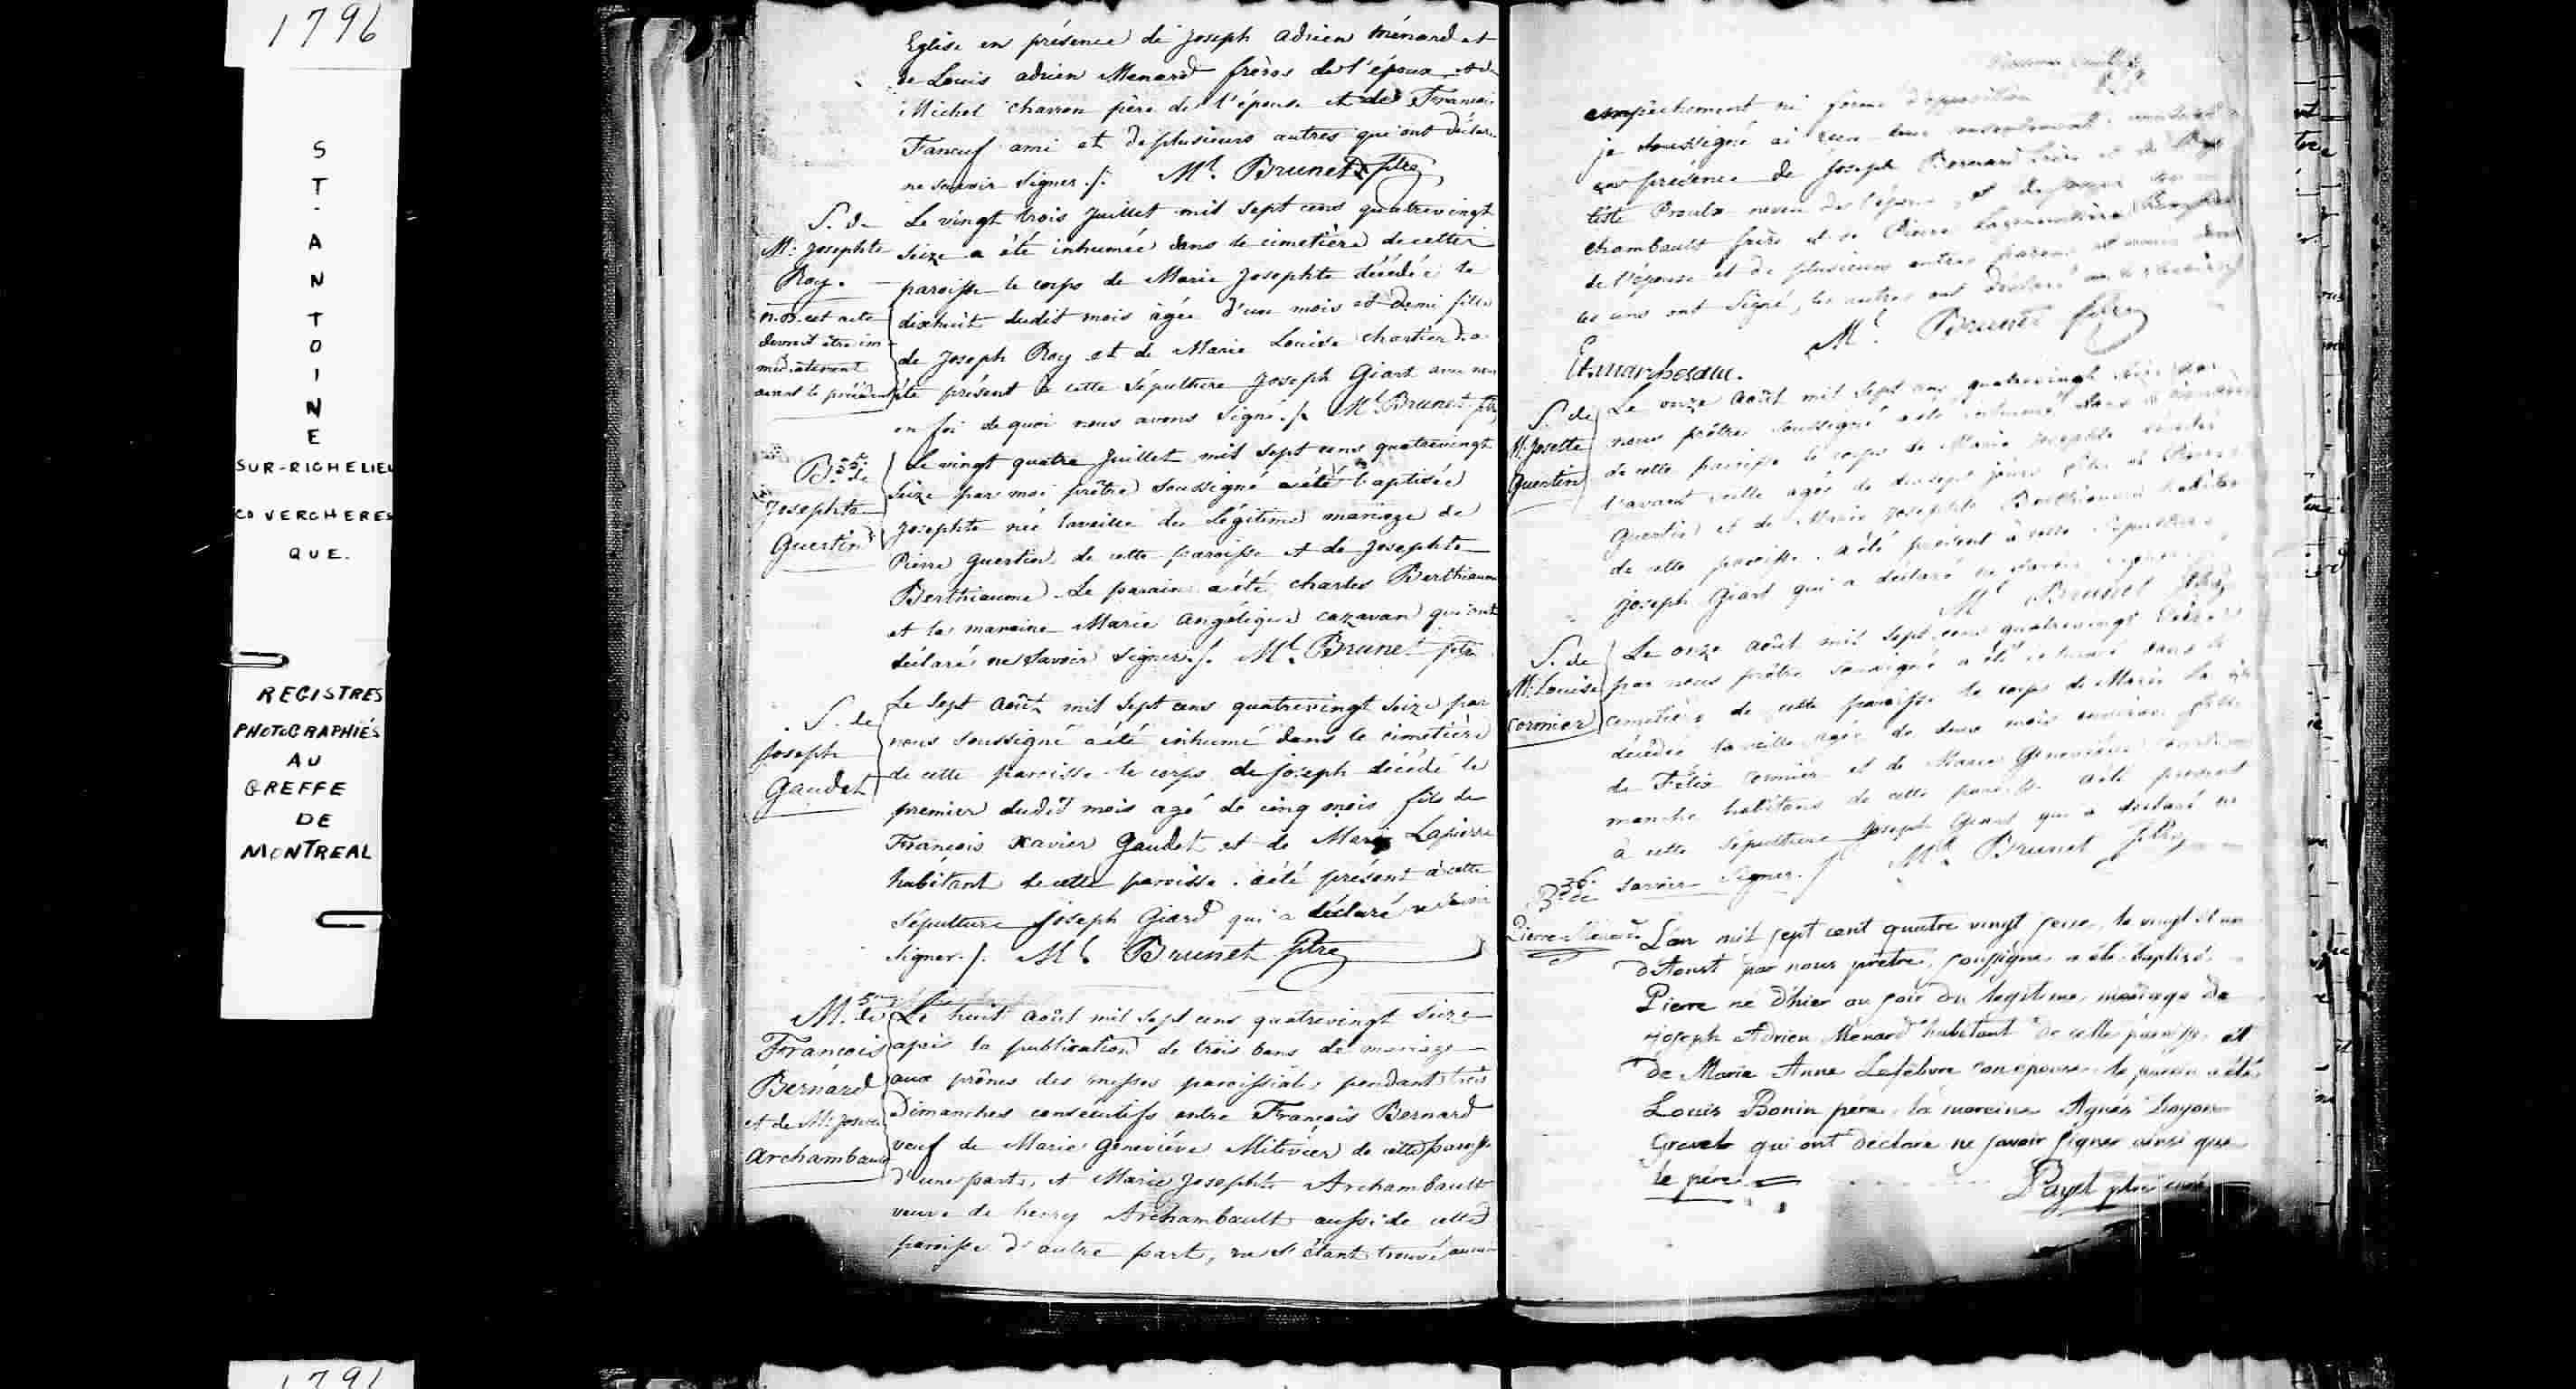 1796
ST. ANTOINE
SUR-RICHELIEU
CO VERCHERES
QUE.
REGISTRES
PHOTOGRAPHIÉS
AU
GREFFE
DE
MONTREAL
Eglise en présence de Joseph adrien ménard et
de Louis adrien Menard frères de l'époux et de
Michel charron père de l'épouse et de François
Faneuf ami et de plusieurs autres qui ont déclaré
ne savoir signer ./. Ml. Brunet ptre
S. de
M. Josephte
Roy.
n.B. cet acte
devroit être im
médiatement
avant le précédent
Le vingt trois Juillet mil sept cens quatrevingt
seize a été inhumée dans le cimetière de cette
paroisse le corps de Marie Josephte décédée le
dixhuit dudit mois âgée d'un mois et demi fille
de Joseph Roy et de Marie Louise chartier. a
été présent à cette sépulture Joseph Giart avec nous
en foi de quoi nous avons signé ./. Ml. Brunet ptre
B. de
Josephte
Guertin
Le vingt quatre Juillet mil sept cens quatrevingt
seize par moi prêtre soussigné a été baptisée
Josephte née la veille du légitime mariage de
Pierre Guertin de cette paroisse et de Josephte
Berthiaume. Le parain a été charles Berthiaume
et la maraine Marie angélique cazavan qui ont
déclaré ne savoir signer ./. Ml. Brunet ptre
S. de
Joseph
Gaudet
Le sept août mil sept cens quatrevingt seize par
nous soussigné a été inhumé dans le cimetière
de cette paroisse le corps de joseph décédé le
premier dudit mois agé de cinq mois fils de
François xavier Gaudet et de Marie Lapierre
habitant de cette paroisse. a été présent à cette
sépulture Joseph Giard qui a déclaré ne savoir
signer ./. Ml. Brunet ptre
M. de
François
Bernard
et de M. Josette
Archambault
Le huit août mil sept cens quatrevingt seize
après la publication de trois bans de mariage
aux prônes des messes paroissiales pendant trois
Dimanches consecutifs entre François Bernard
veuf de Marie Geneviève Mitivier de cette paroisse
d'une part, et Marie Josephte Archambault
veuve de henry Archambault aussi de cette
paroisse d'autre part, ne s'étant trouvé aucun
empêchement ni forme d'opposition
je soussigné ai reçu leur consentement
en présence de Joseph Bernard frère et de
tiste Proulx neveu de l'époux, et de
chambault frère et de Pierre
de l'épouse et de plusieurs autres parens et amis dont
les uns ont signé, les autres ont déclaré ne le savoir
Ml. Brunet ptre
Et. marchesseau.
S. de
M. Josette
Guertin
Le onze août mil sept cens quatrevingt seize par
nous prêtre soussigné a été inhumé dans le cimetière
de cette paroisse le corps de Marie Josephte décédée
l'avant veille agée de dixsept jours fille de Pierre
Guertin et de Marie Josephte Berthiaume habitans
de cette paroisse. a été présent à cette sépulture
Joseph Giart qui a déclaré ne savoir signer
Ml. Brunet ptre
S. de
M. Louise
Cormier
Le onze août mil sept cens quatrevingt seize
par nous prêtre soussigné a été inhumé dans le
cimetière de cette paroisse le corps de Marie Louise
décédée la veille agée de deux mois environ fille
de Félix Cormier et de Marie Geneviève
manche habitans de cette paroisse. a été présent
à cette sépulture Joseph Giart qui a déclaré ne
savoir signer ./. Ml. Brunet ptre
B. de
Pierre Menard
L'an mil sept cent quatre vingt seize, le vingt et un
d'Aoust par nous prêtre soussigné a été baptisé
Pierre né d'hier au soir du legitime mariage de
Joseph Adrien Menard habitant de cette paroisse et
de Marie Anne Lefebvre son epouse. le parein a été
Louis Bonin père. la mareine Agnès
Gravel qui ont déclaré ne savoir signer ainsi que
le père
Payet ptre curé